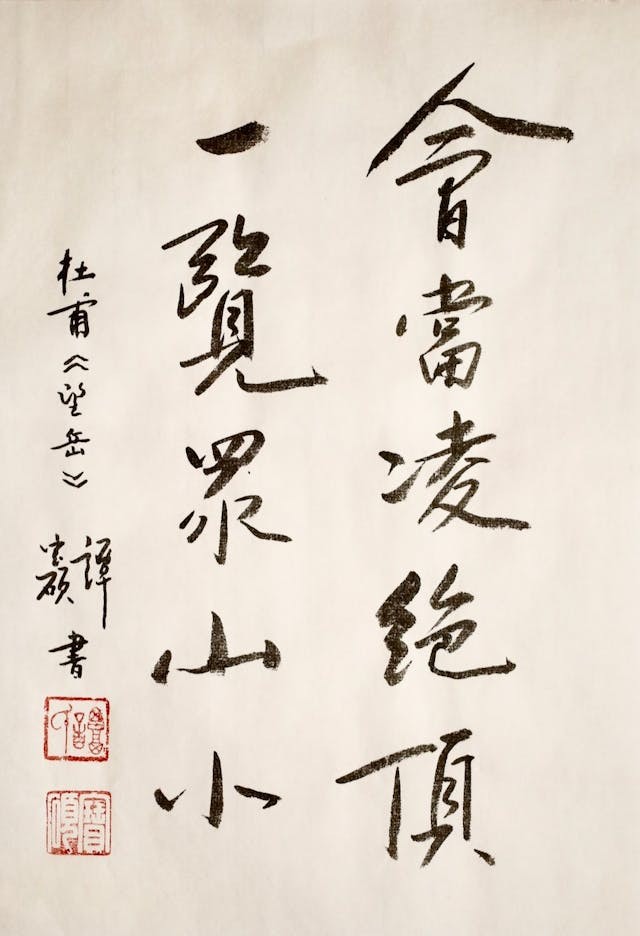 會當凌絕頂
一覽眾山小
杜甫《望岳》
譚
書